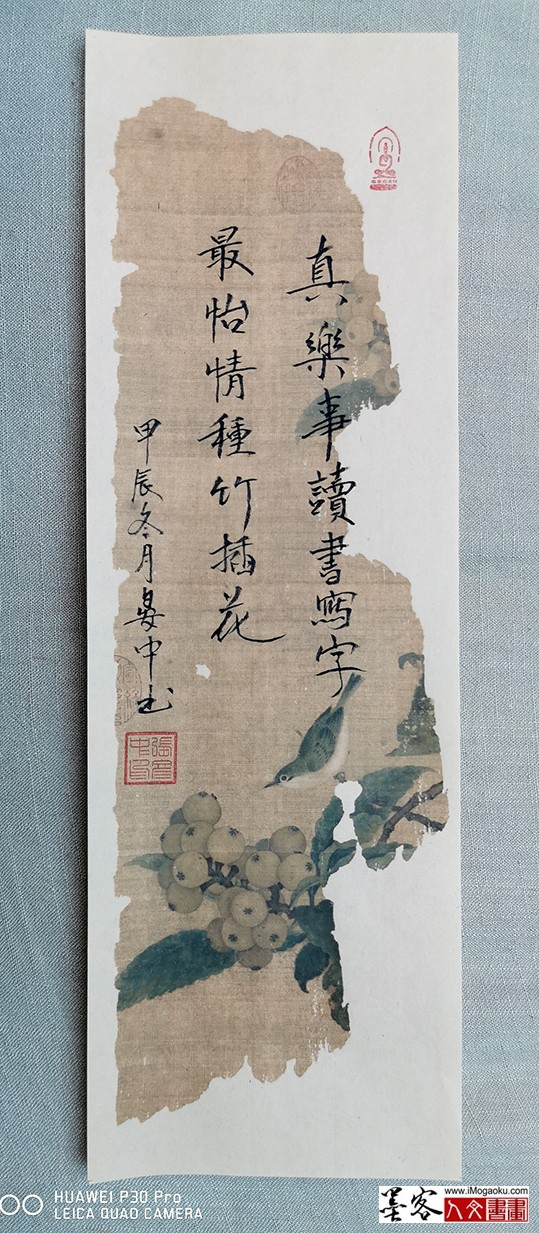 真樂事讀書寫字
最怡情種竹插花
甲辰冬月晏中书
HUAWEI P30 Pro
LEICA QUAD CAMERA
墨客
www.iMogaoku.com
人文書畫